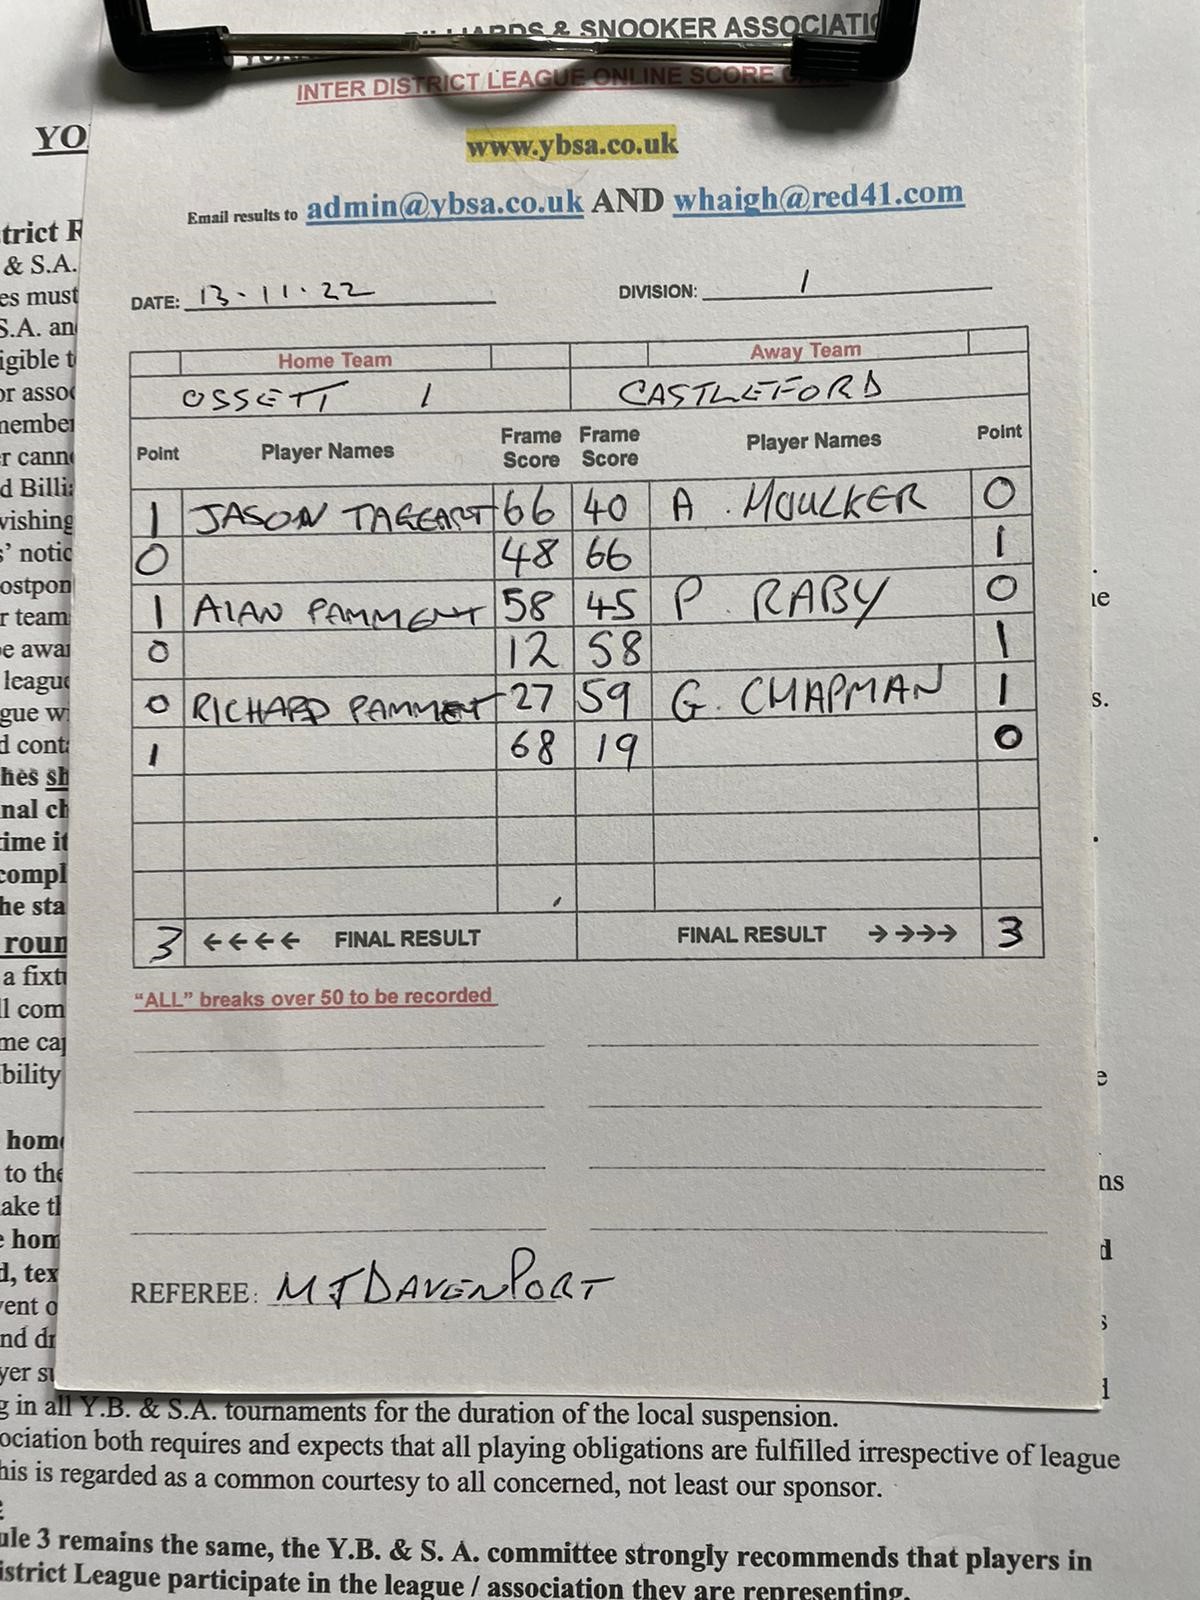 BILLIARDS & SNOOKER ASSOCIATI
INTER DISTRICT LEAGUE ONLINE SCORE
www.ybsa.co.uk
Email results to admin@ybsa.co.uk AND whaigh@red41.com
DATE: 13-11-22 DIVISION: 1
Home Team Away Team
OSSETT 1 CASTLEFORD
Point Player Names Frame Score Frame Score Player Names Point
1 JASON TAGGART 66 40 A. MOULKER 0
0 48 66 1
1 ALAN PAMMENT 58 45 P. RABY 0
0 12 58 1
0 RICHARD PAMMENT 27 59 G. CHAPMAN 1
1 68 19 0
3 ←←←← FINAL RESULT FINAL RESULT →→→→ 3
“ALL” breaks over 50 to be recorded
REFEREE: MJ DAVENPORT
YO
trict R
& S.A.
es must
S.A. an
igible t
or asso
member
r cann
d Billi
vishing
s’ notic
ostpon
r team
e awar
league
gue w
d cont
hes sh
nal ch
time it
compl
he sta
roun
a fixt
ll com
me ca
bility
hom
to the
ake t
e hom
d, tex
vent o
nd dr
yer su
g in all Y.B. & S.A. tournaments for the duration of the local suspension.
ociation both requires and expects that all playing obligations are fulfilled irrespective of league
his is regarded as a common courtesy to all concerned, not least our sponsor.
ule 3 remains the same, the Y.B. & S. A. committee strongly recommends that players in
istrict League participate in the league / association they are representing.